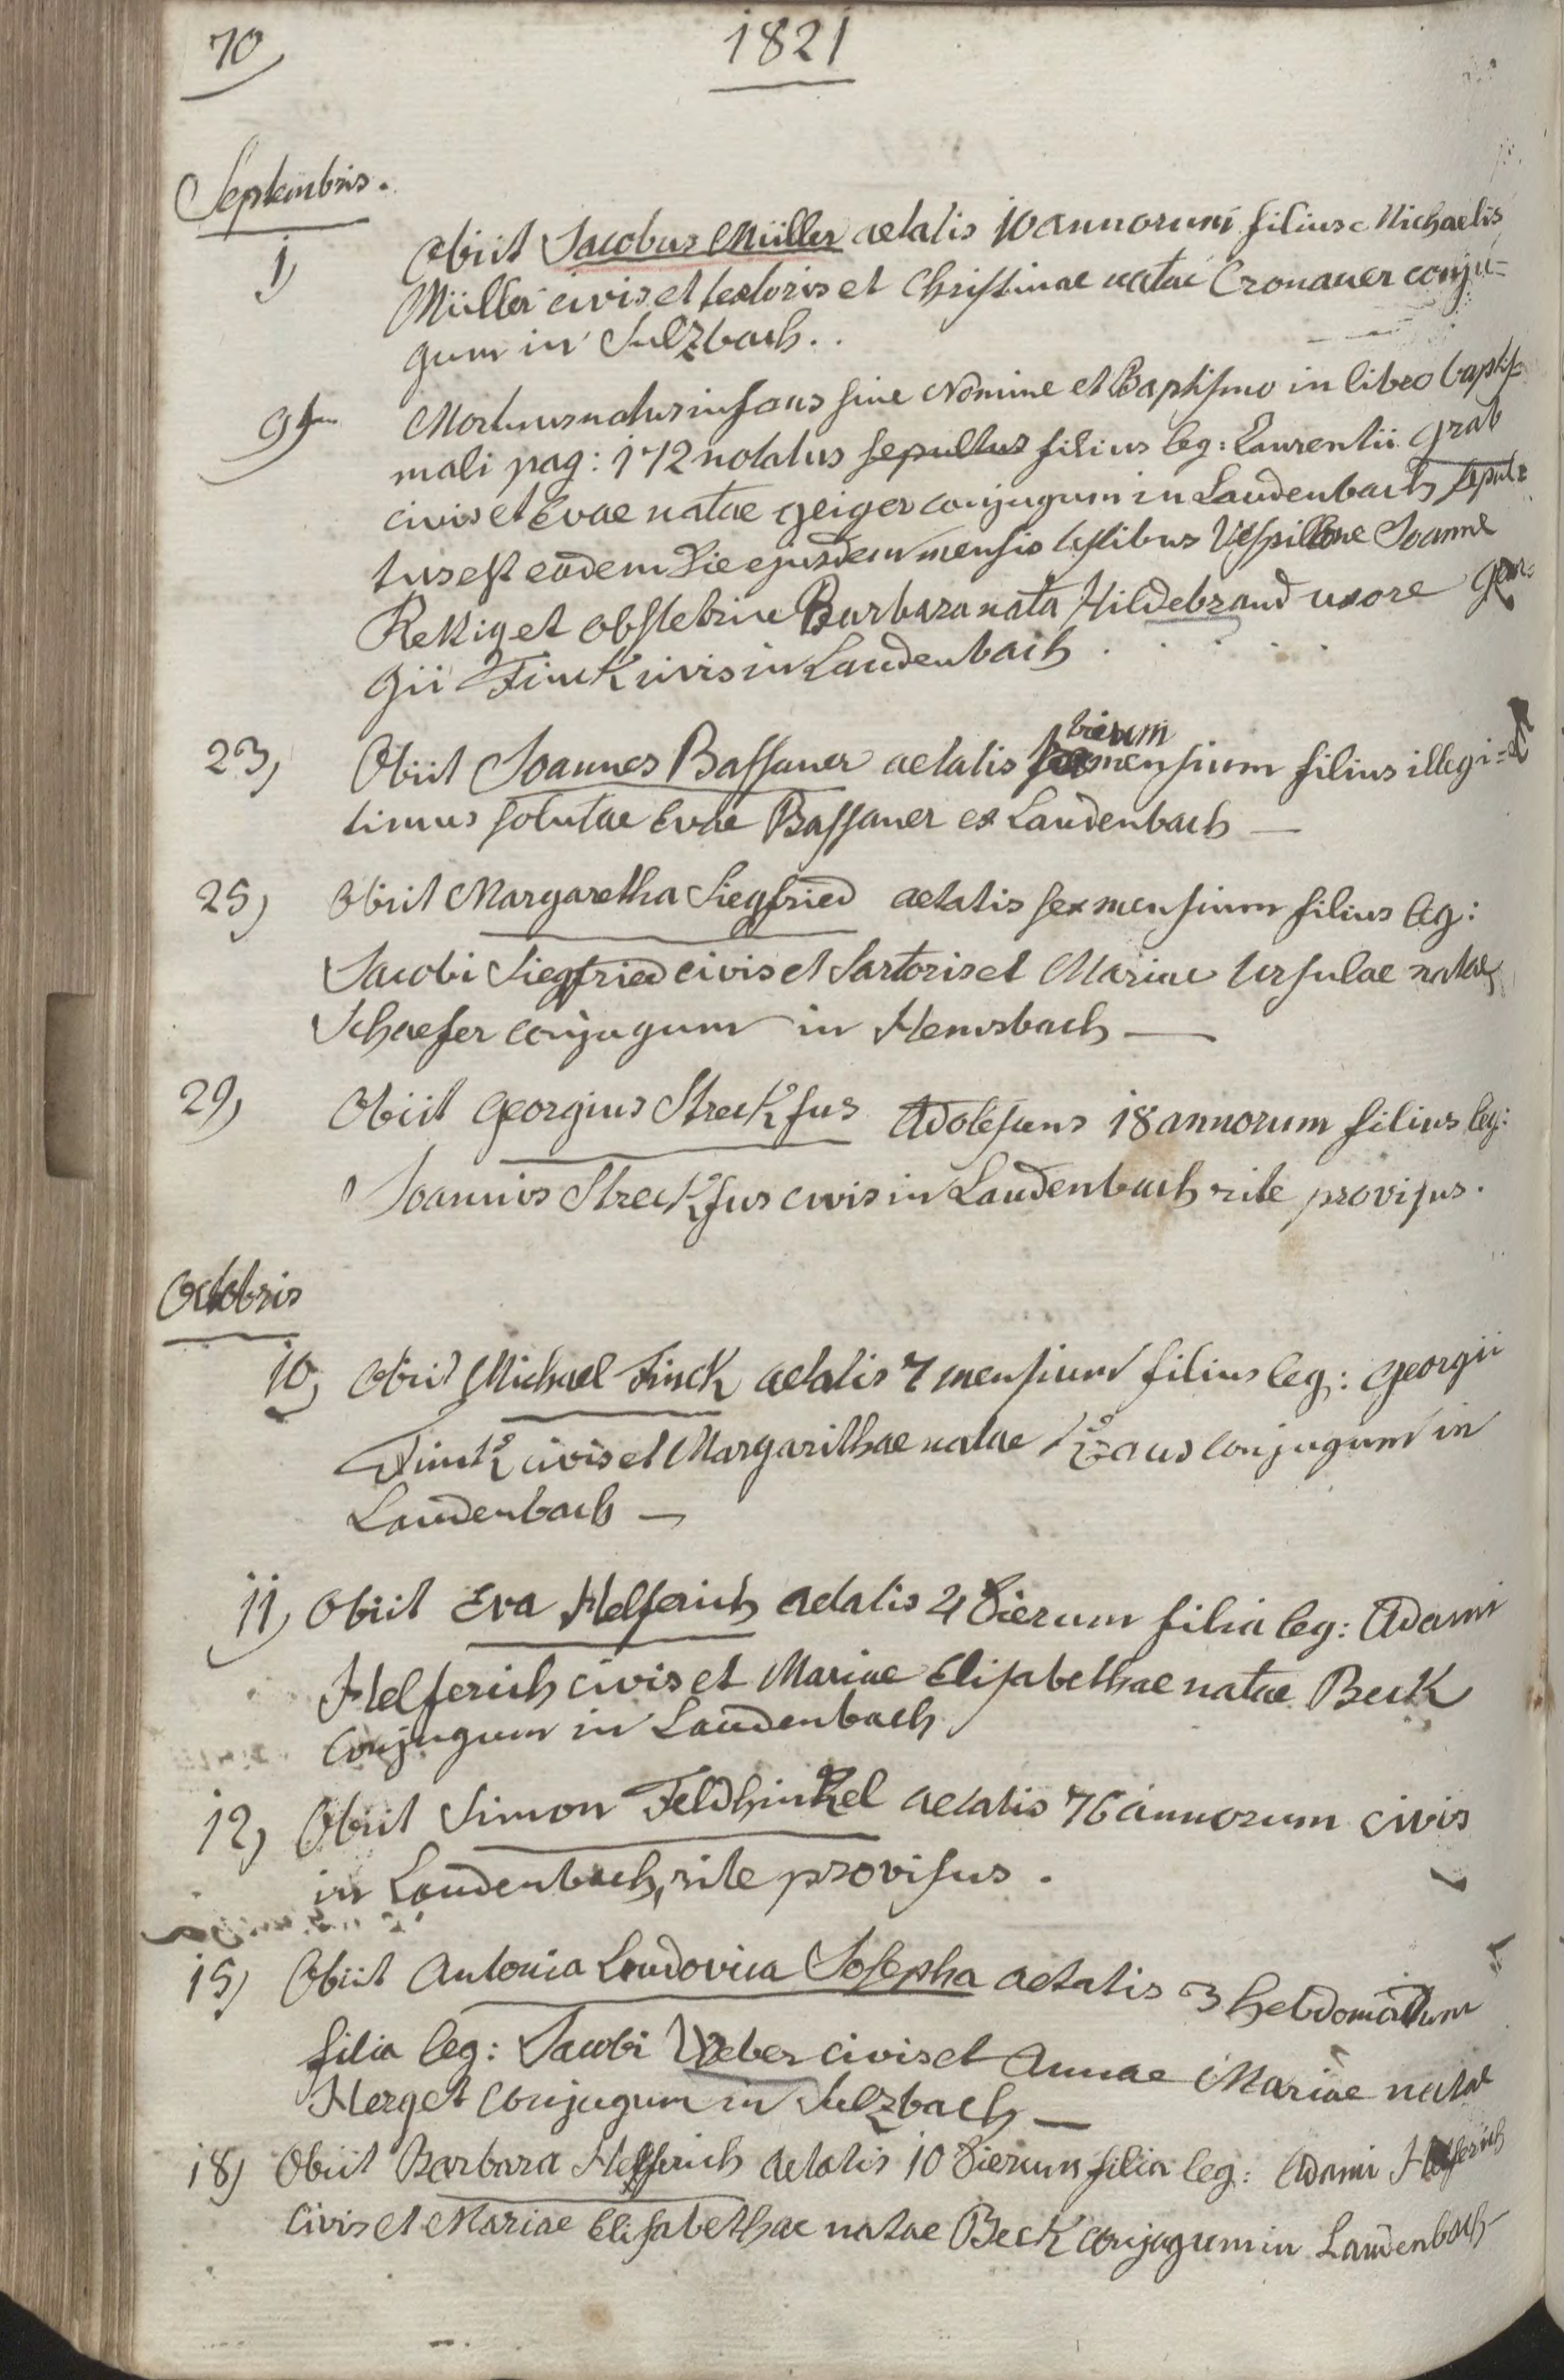 70
1821
Septembris.
1) Obiit Jacobus Müller aetatis 10 annorum filius Michaelis
Müller civis et textoris et Christinae natae Cronauer conju=
gum in Sulzbach..
9ten Mortuus natus infans sine Nomine et Baptismo in libro baptis=
mali pag: 172 notatus sepultus filius leg: Laurentii Grab
civis et Evae natae Geiger conjugum in Laudenbach sepul=
tus est eodem die ejusdem mensis testibus Vespillone Joanne
Rettig et obstetrice Barbara nata Hildebrand uxore Geor=
gii Finck civis in Laudenbach . . . . .
23) Obiit Joannes Bassauer aetatis trium mensium filius illegi=
timus solutae Evae Bassauer ex Laudenbach —
25) Obiit Margaretha Siegfried aetatis sex mensium filius leg:
Jacobi Siegfried civis et Sartoris et Mariae Ursulae natae
Schaefer conjugum in Hemsbach —
29) Obiit Georgius Streckfus Adolescens 18 annorum filius leg:
Joannis Streckfus civis in Laudenbach rite provisus.
Octobris
10) Obiit Michael Finck aetatis 7 mensium filius leg: Georgii
Finck civis et Margarithae natae Kraus conjugum in
Laudenbach —
11) Obiit Eva Helferich aetatis 4 dierum filia leg: Adami
Helferich civis et Mariae Elisabethae natae Beck
conjugum in Laudenbach
12) Obiit Simon Feldhinkel aetatis 76 annorum civis
in Laudenbach, rite provisus.
15) Obiit Antonia Loudovica Josepha aetatis 3 hebdomadum
filia leg: Jacobi Weber civis et Annae Mariae natae
Herget conjugum in Sulzbach —
18) Obiit Barbara Helferich aetatis 10 dierum filia leg: Adami Helferich
civis et Mariae Elisabethae natae Beck conjugum in Laudenbach